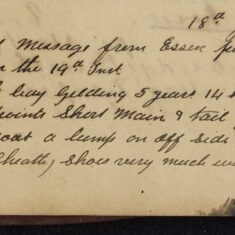 18th
message from Essex
the 19th Inst
bay Gelding 5 years 14
points Short Main & tail
coat a lump on off side
sheath, shoes very much